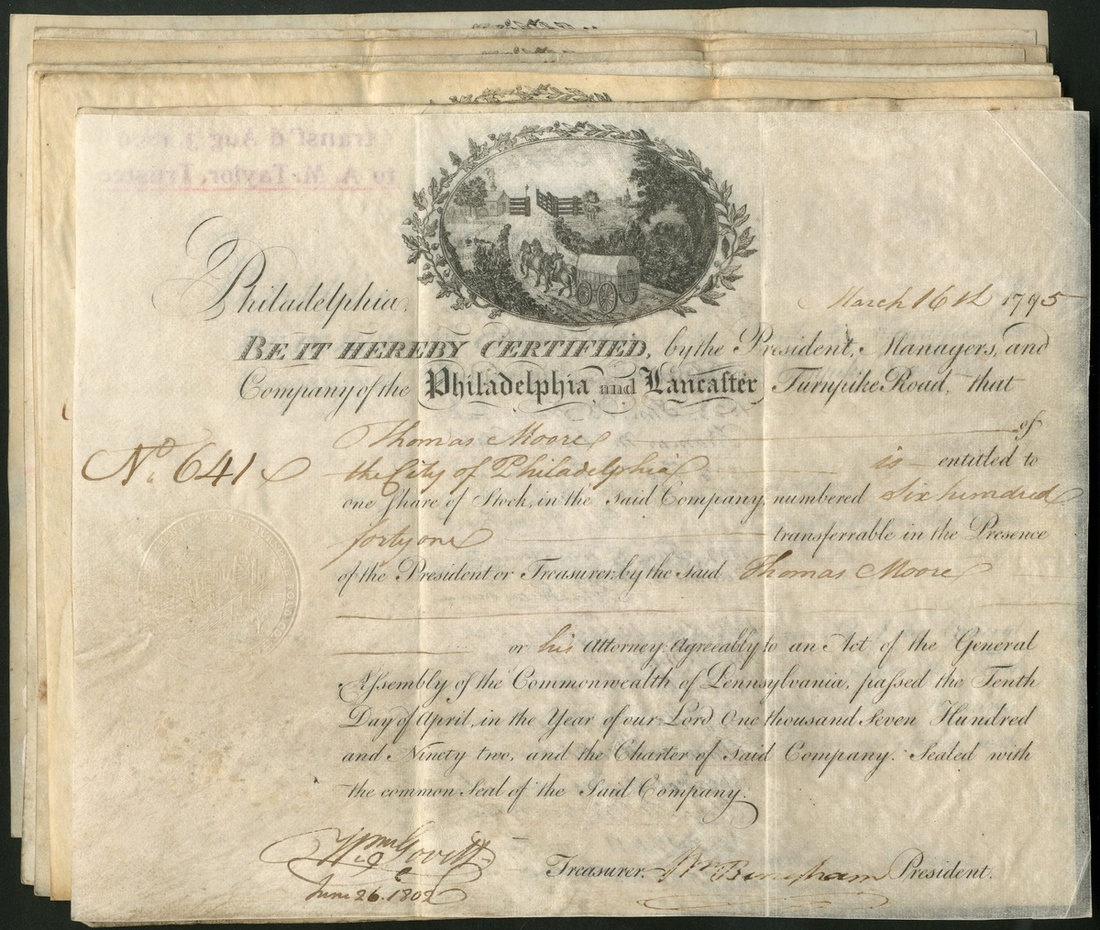 Philadelphia, March 16th 1795
BE IT HEREBY CERTIFIED, by the President, Managers, and
Company of the Philadelphia and Lancaster Turnpike Road, that
Thomas Moore of
No. 641
the City of Philadelphia is entitled to
one Share of Stock, in the said Company, numbered Six hundred
forty one transferrable in the Presence
of the President or Treasurer, by the said Thomas Moore
or his Attorney, Agreeably to an Act of the General
Assembly of the Commonwealth of Pennsylvania, passed the Tenth
Day of April, in the Year of our Lord One thousand Seven Hundred
and Ninety two, and the Charter of Said Company. Sealed with
the common Seal of the Said Company.
Wm Govett Treasurer. Wm Bingham President.
June 26. 1802
transf'd Aug
to A. M. Taylor, Trustee